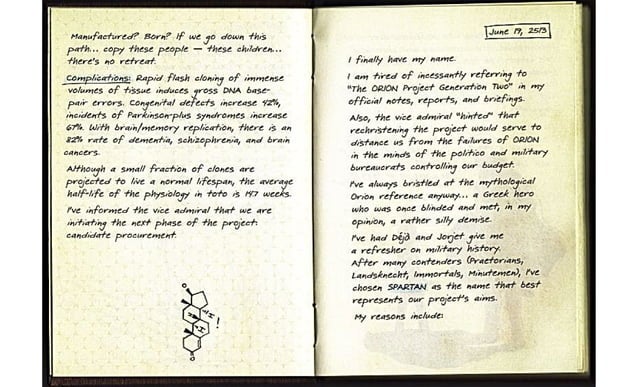 Manufactured? Born? If we go down this
path... copy these people — these children...
there's no retreat.
Complications: Rapid flash cloning of immense
volumes of tissue induces gross DNA base-
pair errors. Congenital defects increase 42%,
incidents of Parkinson-plus syndromes increase
67%. With brain/memory replication, there is an
82% rate of dementia, schizophrenia, and brain
cancers.
Although a small fraction of clones are
projected to live a normal lifespan, the average
half-life of the physiology in toto is 197 weeks.
I've informed the vice admiral that we are
initiating the next phase of the project:
candidate procurement.
June 17, 2513
I finally have my name.
I am tired of incessantly referring to
"The ORION Project Generation Two" in my
official notes, reports, and briefings.
Also, the vice admiral "hinted" that
rechristening the project would serve to
distance us from the failures of ORION
in the minds of the politico and military
bureaucrats controlling our budget.
I've always bristled at the mythological
Orion reference anyway... a Greek hero
who was once blinded and met, in my
opinion, a rather silly demise.
I've had Déjà and Jorjet give me
a refresher on military history.
After many contenders (Praetorians,
Landsknecht, Immortals, Minutemen), I've
chosen SPARTAN as the name that best
represents our project's aims.
My reasons include: